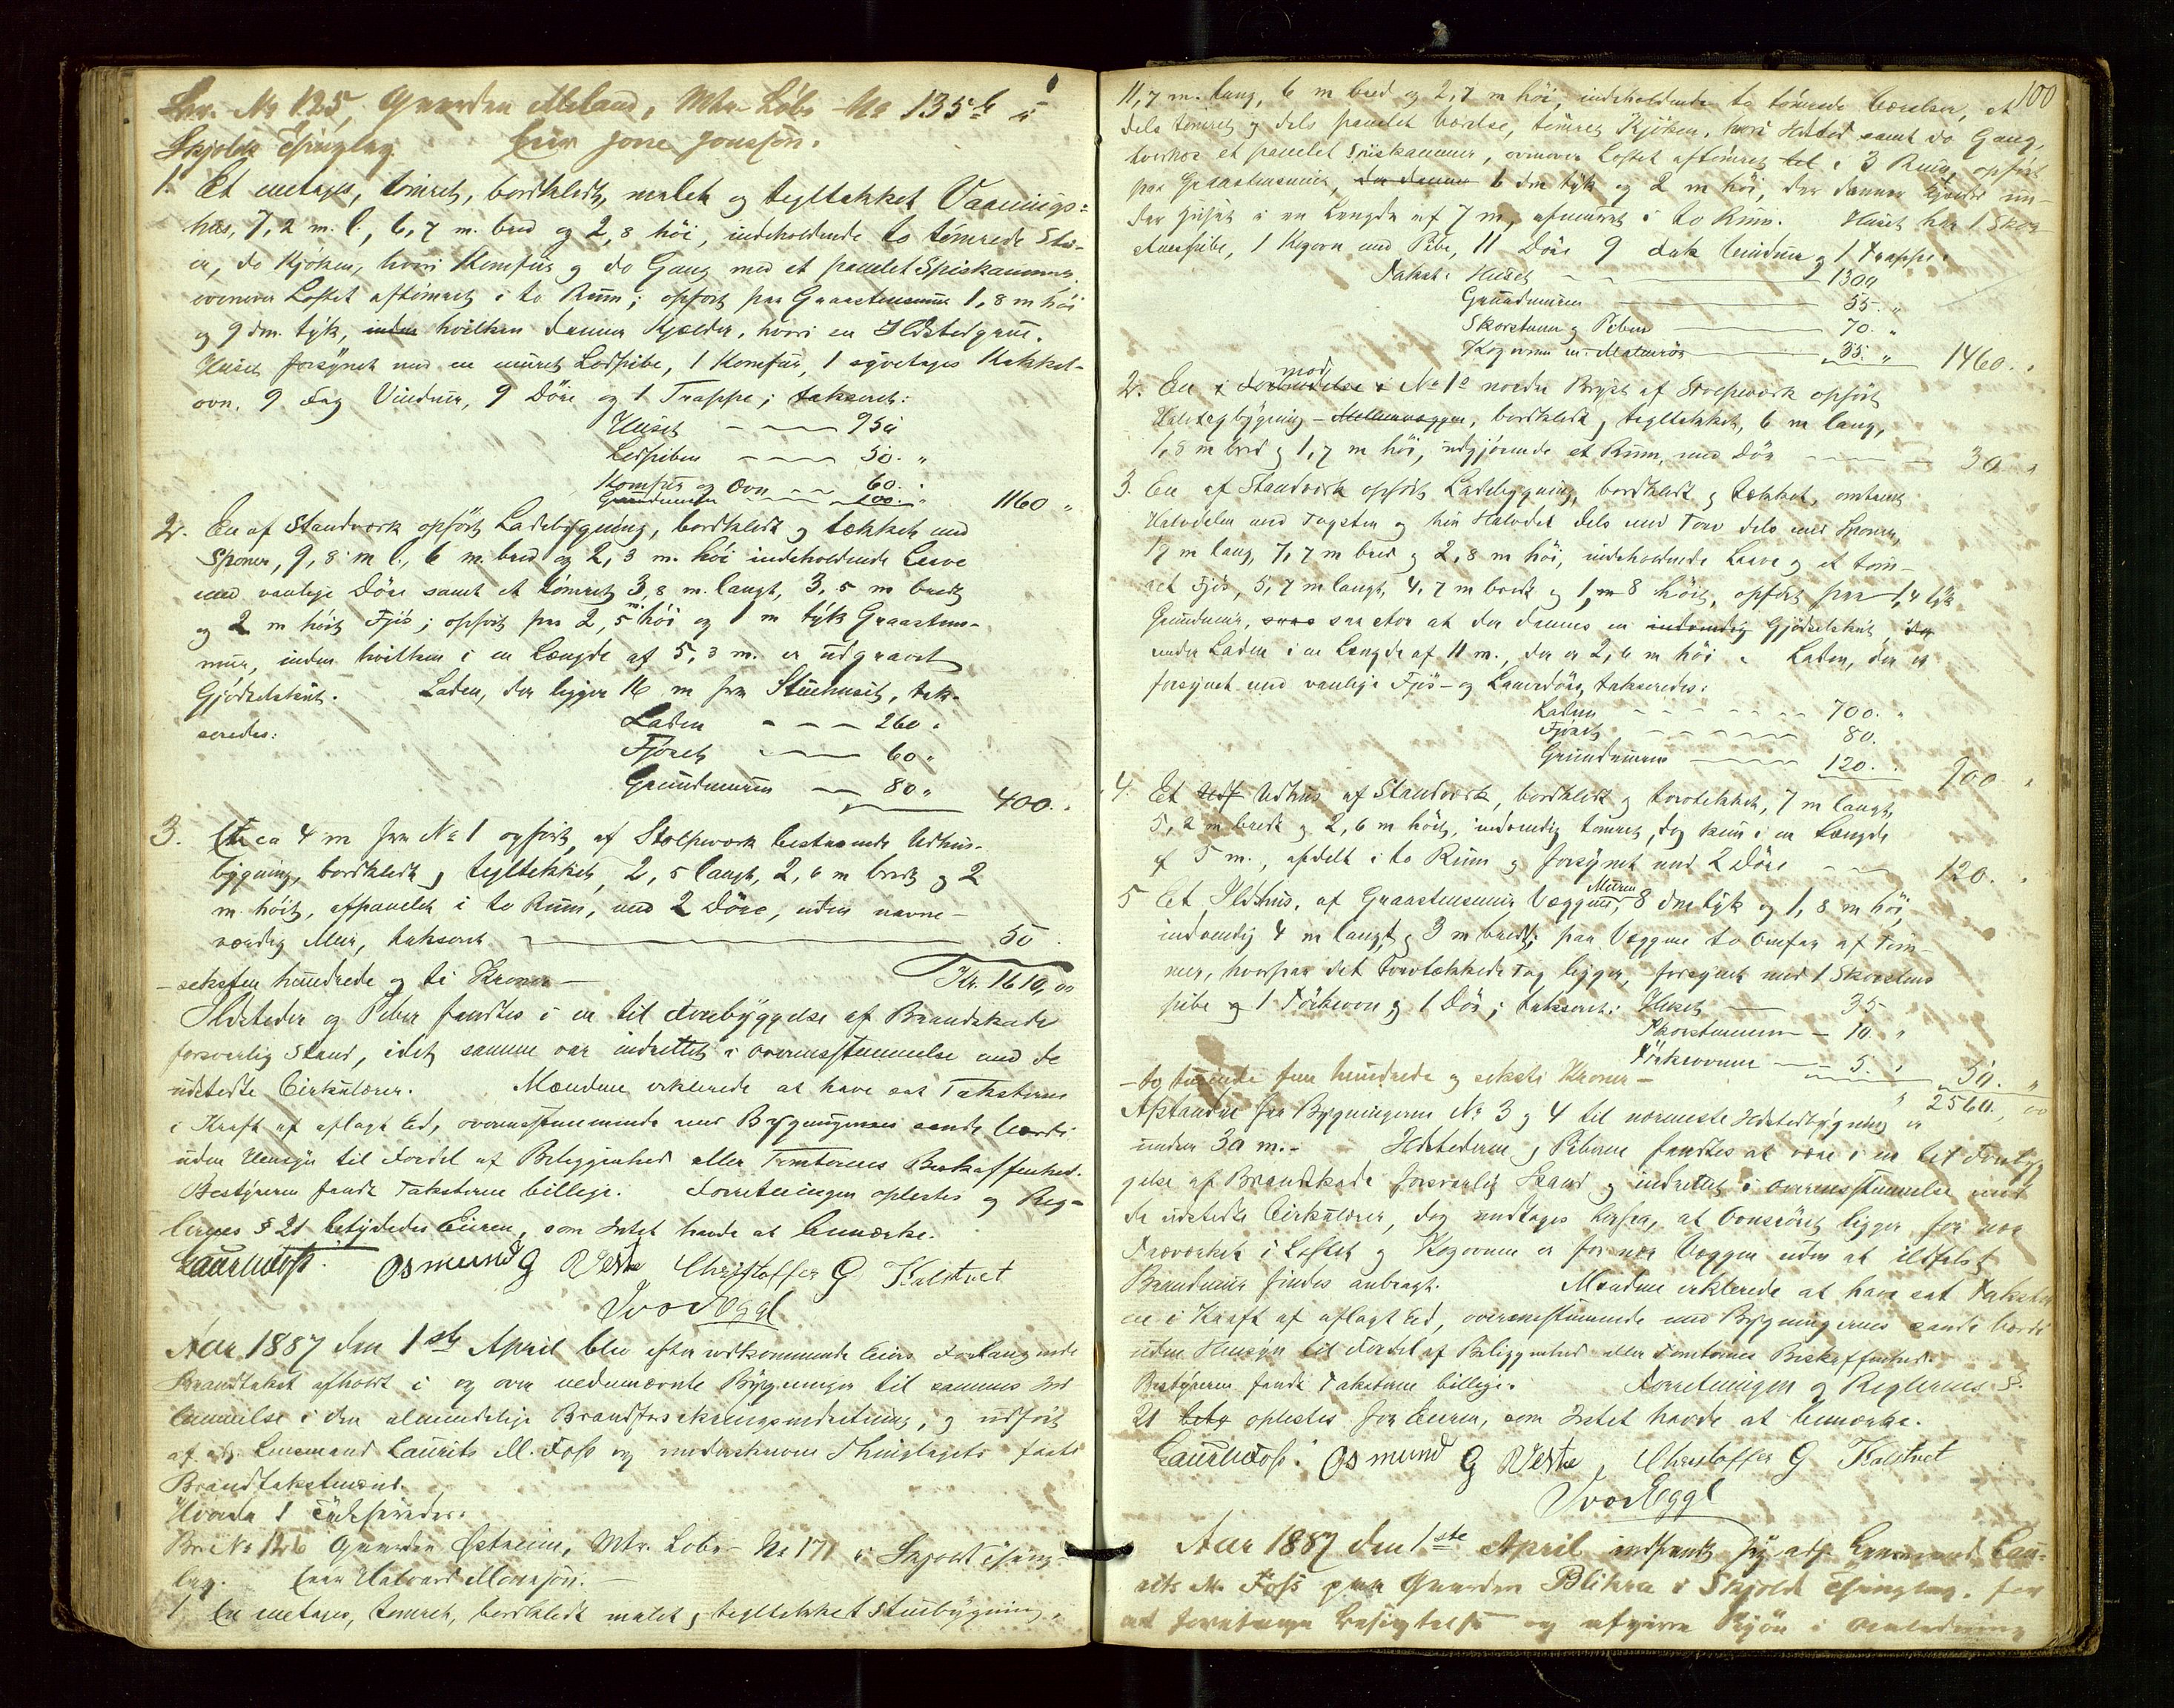 Br. No 125, Gaarden Meland, Mtr. Löbe No 135 b i
Skjolds Thinglag. Eier Jone Jonssön.
1. Et enetages, tömret, bordklædt, malet og tegltækket Vaanings-
hus, 7,2 m. l., 6,7 m. bred og 2,8 höi, indeholdende to tömrede Stu-
er, do Kjöken, hvori Komfur og do Gang med et panelet Spiskammer,
ovenover Loftet aftömret i to Rum; opfört paa Graastensmur 1,8 m höi
og 9 dm. tyk, inden hvilken dannes Kjælder, hvori en Ildstedgrue.
Huset forsynet med en muret Lodpibe, 1 Komfur, 1 toetages Kakkel-
ovn, 9 Fag Vinduer, 9 Döre og 1 Trappe; takseret:
Huset 950
Lodpiben 50. "
Komfur og Ovn 60. "
Grundmuren 100. " 1160 "
2. En af Standværk opfört Ladebygning, bordklædt og tækket med
Sponer, 9,8 m l., 6 m. bred og 2,8 m. höi indeholdende Laave
med vanlige Döre samt et tömret 3,8 m. langt, 3,5 m bredt
og 2 m höit Fjös; opfört paa 2,5 m. höi og 1 m tyk Graastens-
mur, inden hvilken i en Længde af 5,3 m. er udgravet
Gjödselskut. Laden, der ligger 16 m fra Stuehuset, tak-
seredes:
Laden 260 "
Fjöset 60 "
Grundmuren 80 " 400. "
3. Et ca 4 m fra No 1 opfört, af Stolpeværk bestaaende Udhus-
bygning, bordklædt og tegltækket, 2,5 langt, 2,6 m bredt og 2
m. höit, afpanelet i to Rum, med 2 Döre, uden nævne-
værdig Mur, takseret 50
- seksten hundrede og ti Kroner - Kr. 1610,00
Ildsteder og Piber fandtes i en til Forebyggelse af Brandskade
forsvarlig Stand, idet samme var indrettet i Overensstemmelse med de
udstedte Cirkulærer. Mændene erklærede at have sat Taksterne
i Kraft af aflagt Ed, overensstemmende med Bygningernes sande Værdi
uden Hensyn til Fordel af Beliggenhed eller Tomternes Beskaffenhed.
Bestyreren fandt Taksterne billige. Forretningen oplestes og Reg-
lernes § 21 betydedes Eieren, som Intet havde at bemærke.
Laur. M Foss. Osmund G Vestre Christoffer G Kalstvet
Ivar Eggl
Aar 1887 den 1ste April blev efter vedkommende Eiers Forlangende
Brandtakst afholdt i og over nedennævnte Bygninger til sammes Ind-
lemmelse i den almindelige Brandforsikringsindretning, og udfört
af adj. Lensmand Laurits M. Foss og undertskrevne Thinglagets faste
Brandtakstmænd.
Br. No 126 Gaarden Östreim, Mtr. Löbe- No 171 i Skjold Thing-
lag. Eier Halvard Monssön. -
1. En enetages, tömret, bordklædt malet og tegltækket Stuebygning,
100
11,7 m. lang, 6 m bred og 2,7 m höi, indeholdende to tömrede Værelser, et
dels tömret og dels panelet Værelse, tömret Kjöken, hvori Ildsted samt do Gang,
tverhos et panelet Spiskammer, ovenover Loftet aftömret til i 3 Rum, opfört
paa Graastensmur, der danner 6 dm tyk og 2 m höi, der danner Kjælder un-
der Huset i en Længde af 7 m., afmuret i to Rum. Huset har 1 Skor-
stenspibe, 1 Kogovn med Pibe, 11 Döre 9 Fak Vinduer og 1 Trappe.
Takst: Huset 1300
Grundmuren 55. "
Skorstenen og Piben 70. "
Kogovnen m. Matrör 35. " 1460. "
2. En i Forbindelse mod No 1s nordre Bryst af Stolpeværk opfört
Halvtagbygning - Mellemvæggen, bordklædt og tegltækket, 6 m lang,
1,8 m bred og 1,7 m höi, udgjörende et Rum, med Dör 30 "
3. En af Standværk opfört Ladebygning, bordklædt og tækket, omtrent
Halvdelen med Tagsten og hin Halvdel dels med Torv dels med Sponer,
19 m lang, 7,7 m bred og 2,8 m höi, indeholdende Laave og et töm-
ret Fjös, 5,7 m langt, 4,7 m bredt og 1,8 höit, opfört paa 1,4 tyk
Grundmur, saa stor at der dannes en indvendig Gjödselskut
under Laden i en Længde af 11 m., der er 2,6 m höi. Laden, der er
forsynet med vanlige Fjös- og Laavedöre, takseredes:
Laden 700. "
Fjöset 80.
Grundmuren 120. " 900 "
4. Et Udhus af Standværk, bordklædt og torvtækket, 7 m langt,
5,2 m bredt og 2,6 m höit, indvendig tömret, dog kun i en Længde
af 5 m., afdelt i to Rum og forsynet med 2 Döre 120. "
5 Et Ildhus, af Graastensmur Væggene, Muren 8 dm tyk og 1,8 m höi,
indvendig 4 m langt og 3 m bredt; paa Væggene to Omfar af Töm-
mer, hvorpaa det torvtækkede Tag ligger, forsynet med 1 Skorstens-
pibe og 1 Törkeovn og 1 Dör; takseret: Huset 35
Skorstenen 10 "
Törkeovnen 5. " 50. "
- to tusende fem hundrede og seksti Kroner - " 2560. 00
Afstanden fra Bygningerne No 3 og 4 til nærmeste Ildstedbygning er
under 30 m. - Ildstederne og Piberne fandtes at være i en til Foreby-
gelse af Brandskade forsvarlig Stand og indrettet i Overensstemmelse med
de udstedte Cirkulærer, dog undtages herfra, at Ovnsröret ligger for nær
Træværket i Loftet og Kogovnen er for nær Væggen uden at ildfast
Brandmur findes anbragt. Mændene erklærede at have sat Takster-
ne i Kraft af aflagt Ed, overensstemmende med Bygningernes sande Værdi
uden Hensyn til Fordel af Beliggenhed eller Tomternes Beskaffenhed.
Bestyreren fandt Taksterne billige. Forretningen og Reglernes §.
21 bety oplestes for Eieren, som Intet havde at bemærke.
Laur. M Foss. Osmund G Vestre, Christoffer G Kalstvet
Ivar Eggl
Aar 1887 den 1ste April indfandt sig adj. Lensmand Lau-
rits M. Foss paa Gaarden Blikra i Skjold Thinglag, for
at foretage Besigtelse og afgive Skjön i Anledning